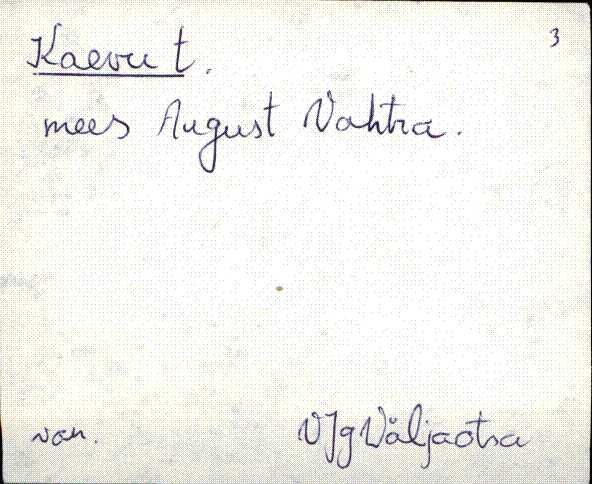 3
Kaevu t.
mees August Vahtra.
van.
VJg Väljaotsa